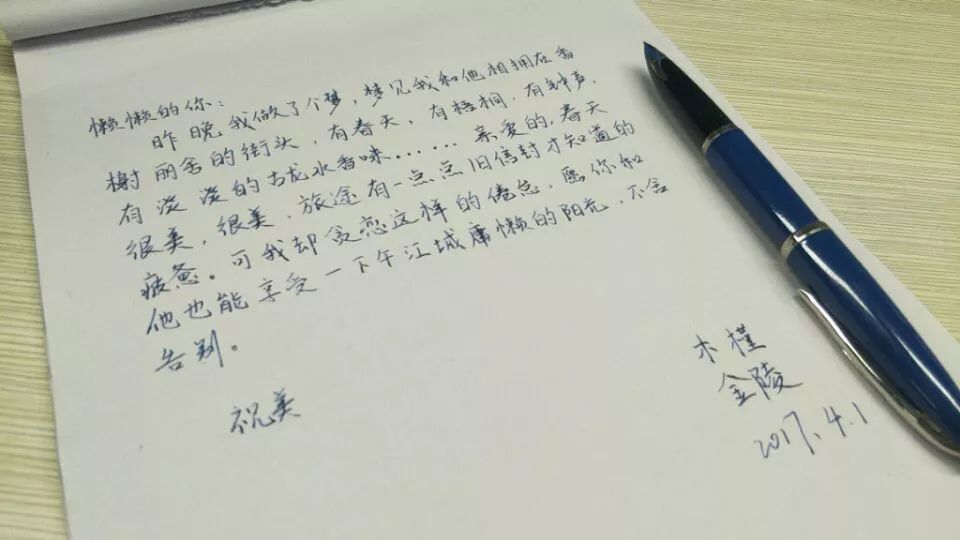 懒懒的你：
昨晚我做了个梦，梦见我和他相拥在香
榭丽舍的街头，有春天，有梧桐，有钟声，
有淡淡的古龙水香味……亲爱的，春天
很美，很美，旅途有一点点旧信封才知道的
疲惫。可我却贪恋这样的倦怠，愿你和
他也能享受一下午江城慵懒的阳光，不舍
告别。
祝美
木槿
金陵
2017.4.1